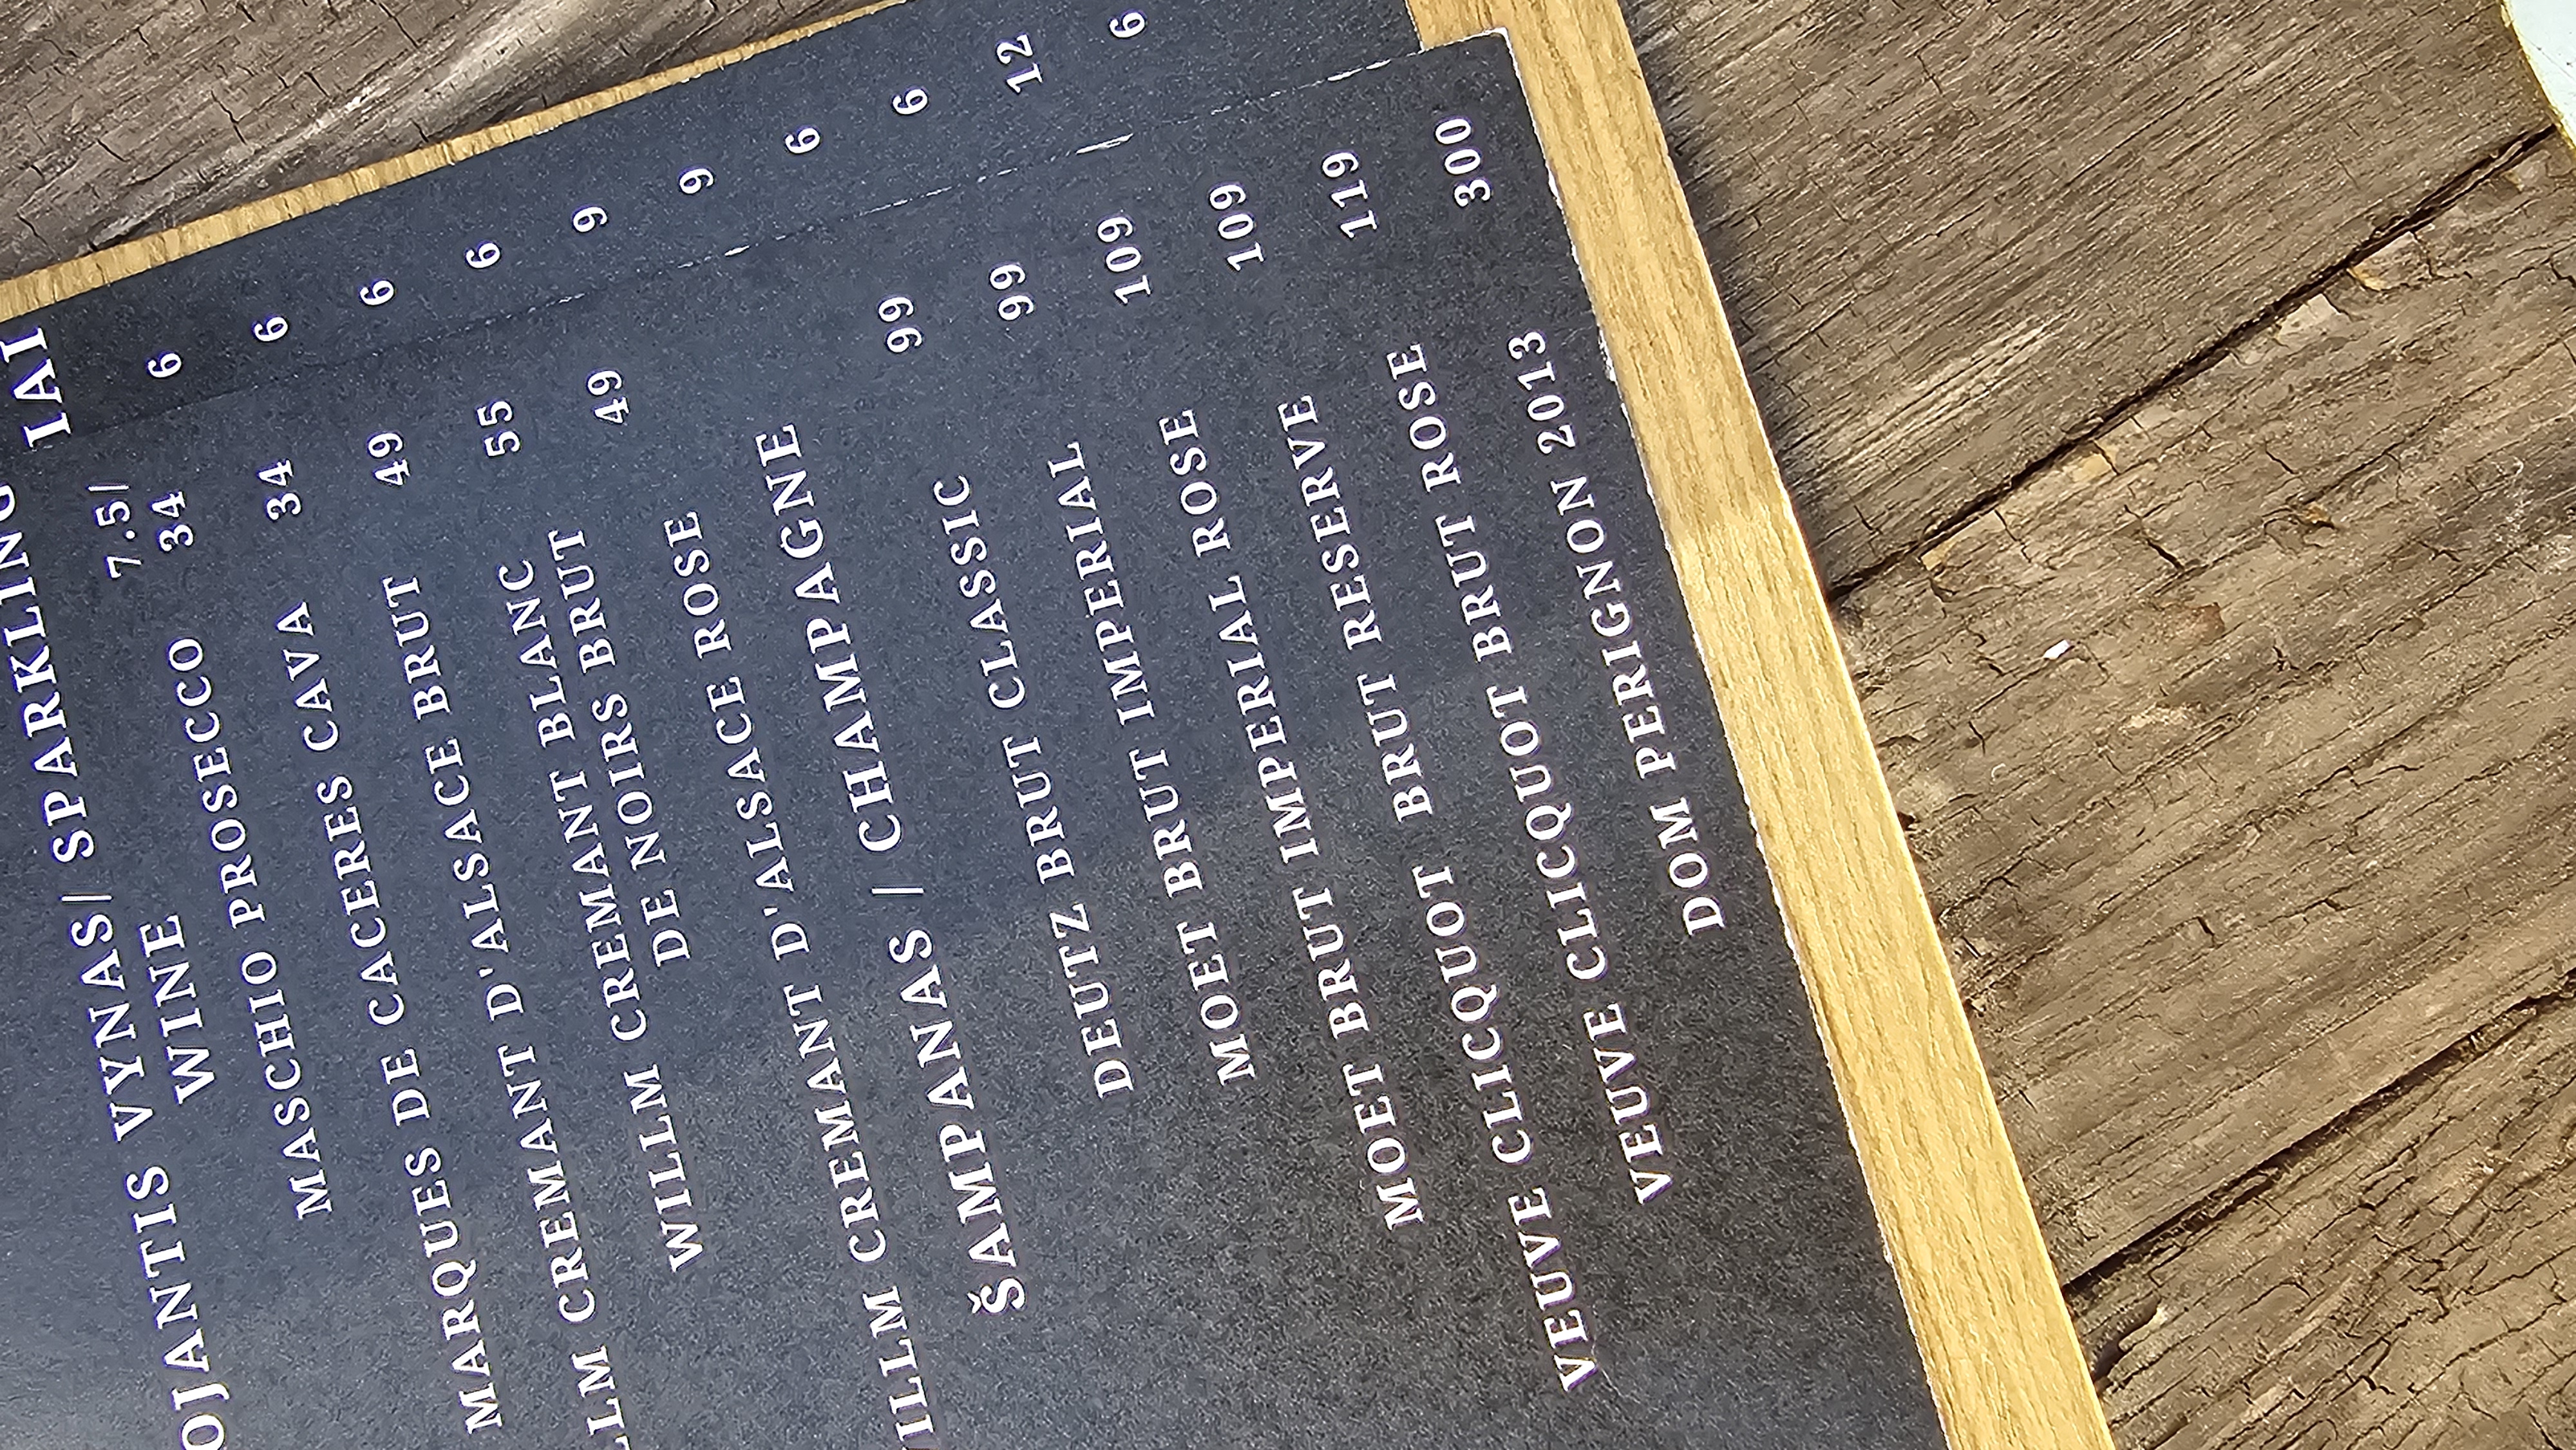 OJANTIS VYNAS/ SPARKLING
WINE
7.5/
MASCHIO PROSECCO 34
MARQUES DE CACERES CAVA 34
LLM CREMANT D'ALSACE BRUT 49
WILLM CREMANT BLANC
DE NOIRS BRUT 55
ILLM CREMANT D'ALSACE ROSE 49
ŠAMPANAS | CHAMPAGNE
DEUTZ BRUT CLASSIC 99
MOET BRUT IMPERIAL 99
MOET BRUT IMPERIAL ROSE 109
VEUVE CLICQUOT BRUT RESERVE 109
VEUVE CLICQUOT BRUT ROSE 119
DOM PERIGNON 2013 300
IAI
6
6
6
6
9
9
6
6
12
6